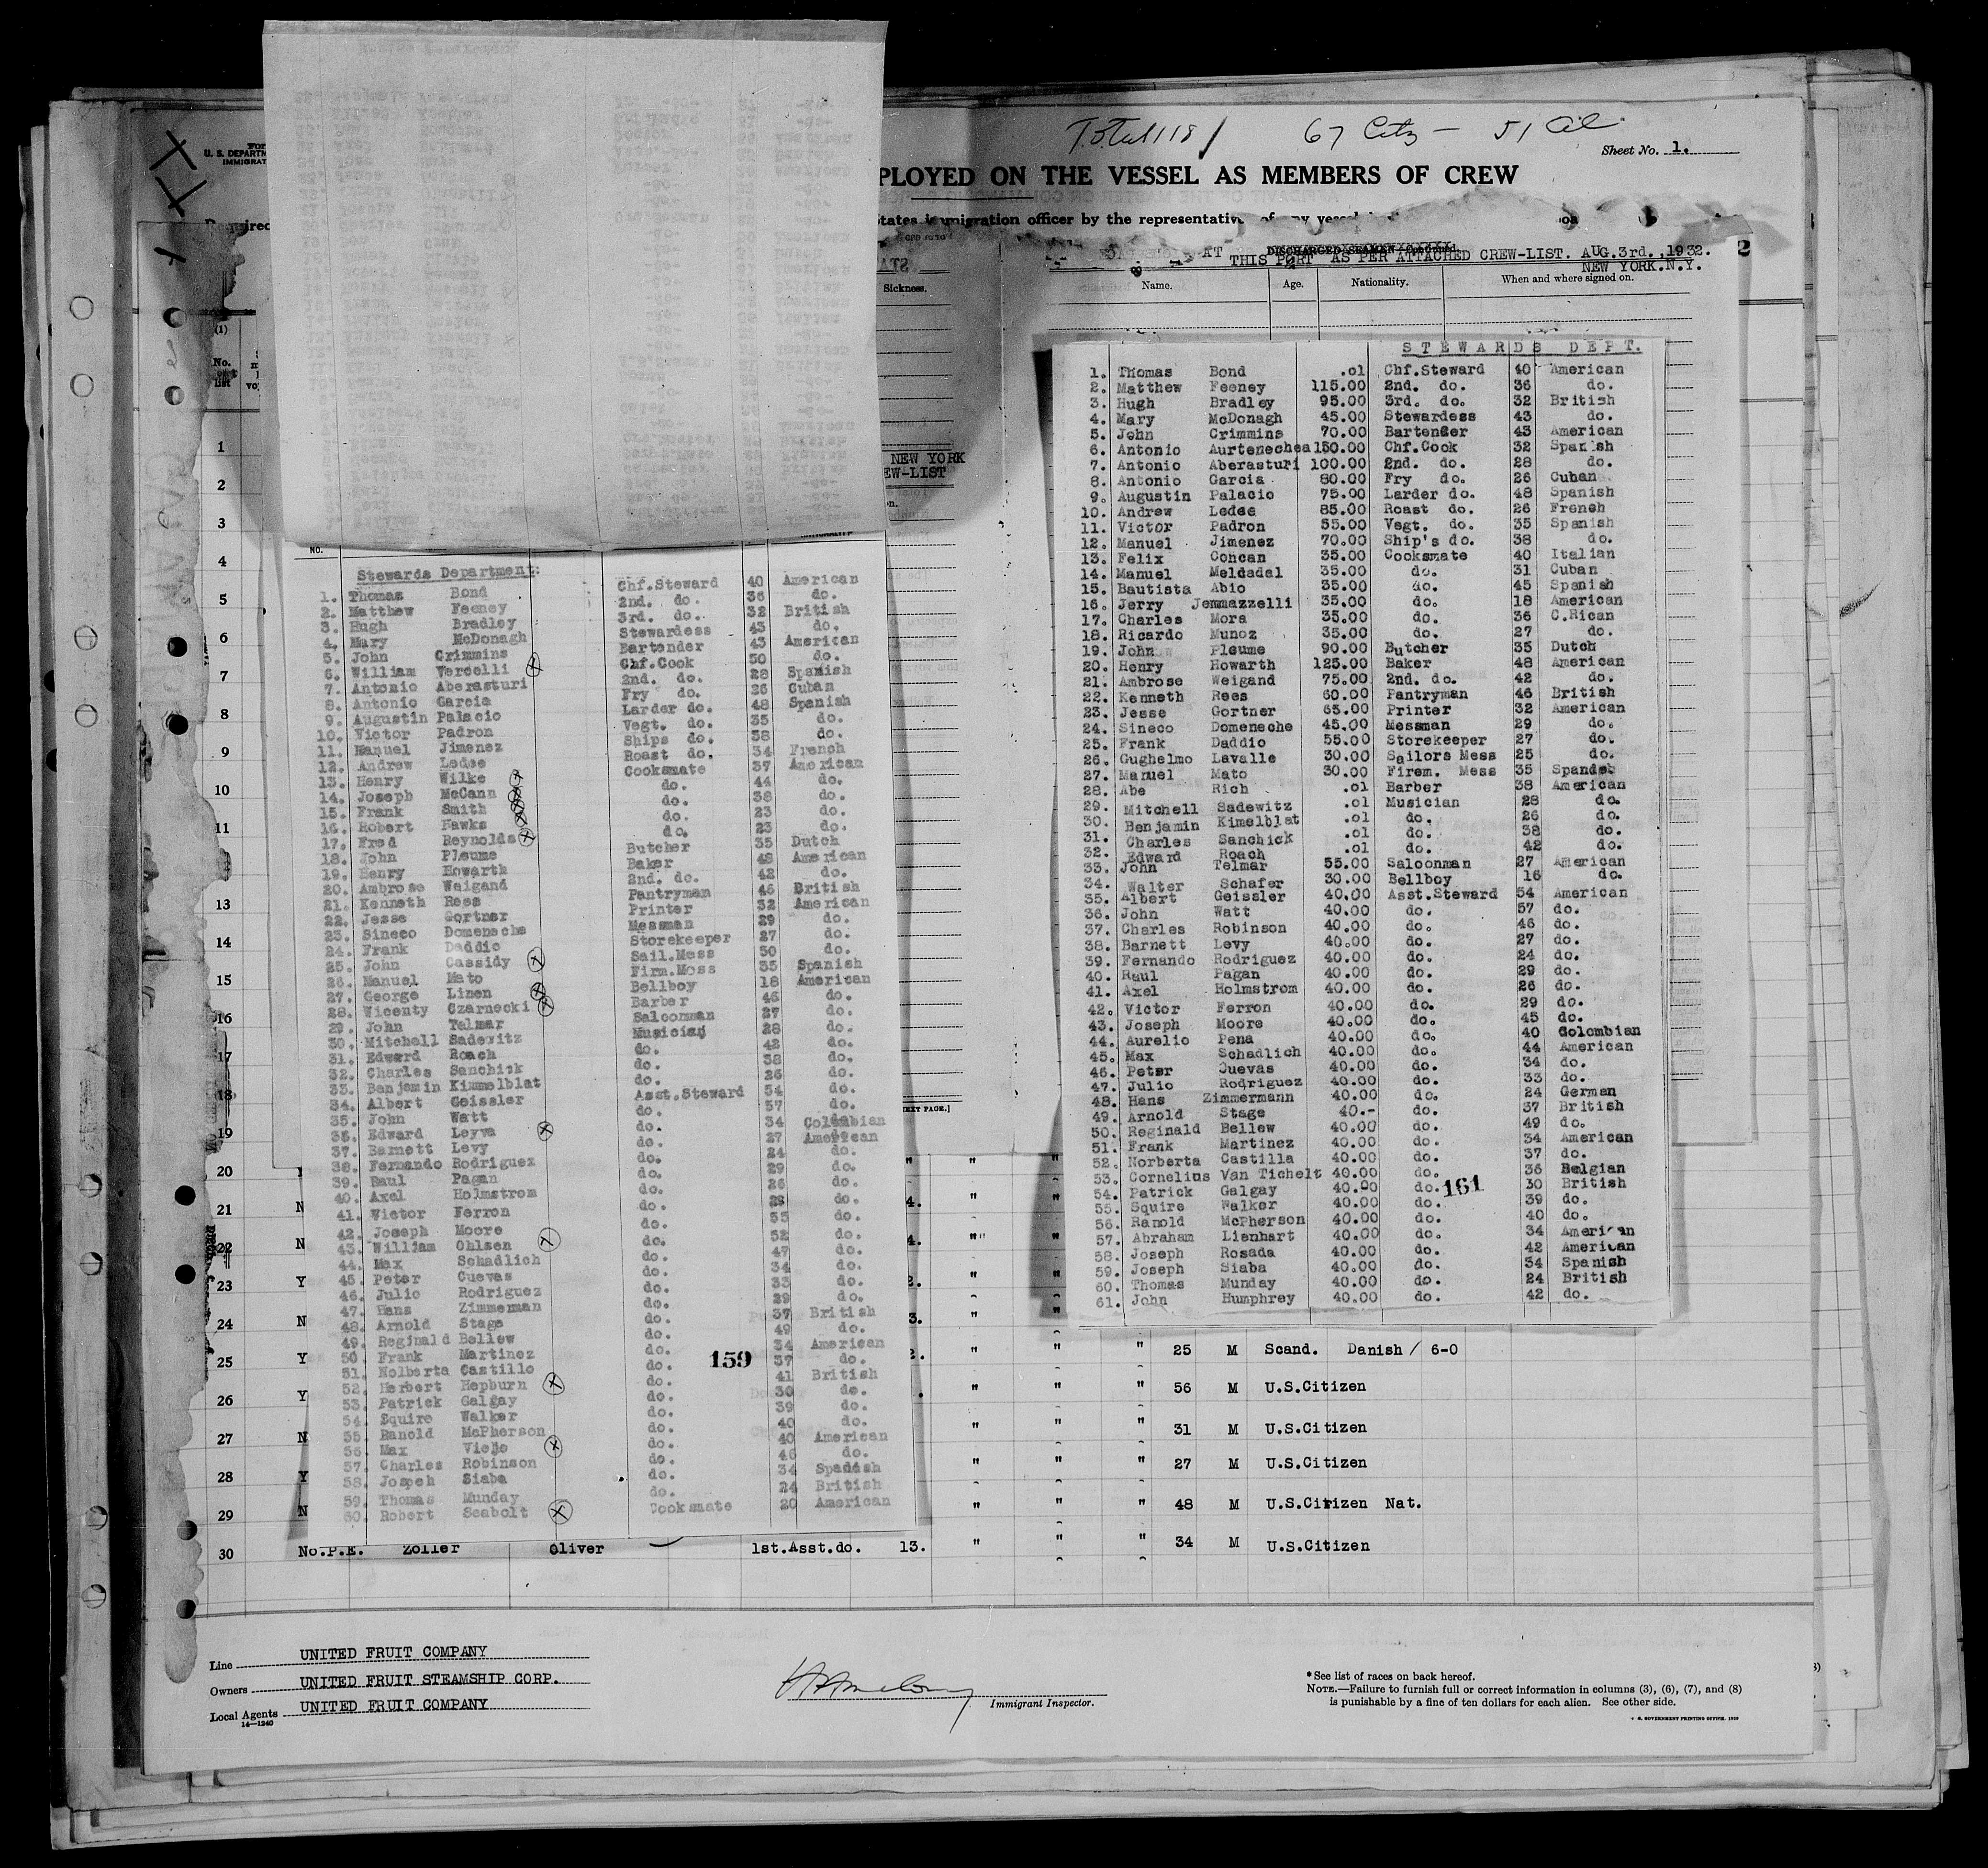 Total 118 / 67 Citz — 51 Al.
Sheet No. 1.
PLOYED ON THE VESSEL AS MEMBERS OF CREW
U. S. DEPARTM
IMMIGRAT
Required
States immigration officer by the representative of any vessel
AT DISCHARGED SEAMAN
THIS PORT AS PER ATTACHED CREW-LIST. AUG.3rd.,1932.
NEW YORK.N.Y.
2
Sickness.
Name. Age. Nationality. When and where signed on.
NEW YORK
EW-LIST
NO.
Stewards Department:
1. Thomas Bond Chf.Steward 40 American
2. Matthew Feeney 2nd. do. 36 do.
3. Hugh Bradley 3rd. do. 32 British
4. Mary McDonagh Stewardess 43 do.
5. John Crimmins Bartender 43 American
6. William Vercelli Chf.Cook 50 do.
7. Antonio Aberasturi 2nd. do. 28 Spanish
8. Antonio Garcia Fry do. 26 Cuban
9. Augustin Palacio Larder do. 48 Spanish
10. Victor Padron Vegt. do. 35 do.
11. Manuel Jimenez Ships do. 38 do.
12. Andrew Ledee Roast do. 34 French
13. Henry Wilke Cooksmate 37 American
14. Joseph McCann do. 44 do.
15. Frank Smith do. 38 do.
16. Robert Hawks do. 23 do.
17. Fred Reynolds do. 23 do.
18. John Pleume Butcher 35 Dutch
19. Henry Howarth Baker 48 American
20. Ambrose Weigand 2nd. do. 42 do.
21. Kenneth Rees Pantryman 46 British
22. Jesse Gortner Printer 32 American
23. Sineco Domeneche Messman 29 do.
24. Frank Daddio Storekeeper 27 do.
25. John Cassidy Sail.Mess 50 do.
26. Manuel Mato Firm.Mess 35 Spanish
27. George Linen Bellboy 18 American
28. Wicenty Czarnecki Barber 46 do.
29. John Telmar Saloonman 27 do.
30. Mitchell Sadewitz Musician 28 do.
31. Edward Roach do. 42 do.
32. Charles Sanchick do. 38 do.
33. Benjamin Kimmelblat do. 26 do.
34. Albert Geissler Asst.Steward 54 do.
35. John Watt do. 57 do.
36. Edward Leyva do. 34 Colombian
37. Barnett Levy do. 27 American
38. Fernando Rodriguez do. 24 do.
39. Raul Pagan do. 29 do.
40. Axel Holmstrom do. 26 do.
41. Victor Ferron do. 28 do.
42. Joseph Moore do. 55 do.
43. William Ohlsen do. 52 do.
44. Max Schadlich do. 47 do.
45. Peter Cuevas do. 34 do.
46. Julio Rodriguez do. 33 do.
47. Hans Zimmerman do. 29 do.
48. Arnold Stage do. 37 British
49. Reginald Bellew do. 49 do.
50. Frank Martinez do. 34 American
51. Nolberta Castillo do. 37 do.
52. Herbert Hepburn do. 41 British
53. Patrick Galgay do. 30 do.
54. Squire Walker do. 39 do.
55. Ranold McPherson do. 40 do.
56. Max Viejo do. 40 American
57. Charles Robinson do. 46 do.
58. Jospeh Siaba do. 34 Spanish
59. Thomas Munday do. 24 British
60. Robert Seabolt Cooksmate 20 American
159
STEWARDS DEPT.
1. Thomas Bond .01 Chf.Steward 40 American
2. Matthew Feeney 115.00 2nd. do. 36 do.
3. Hugh Bradley 95.00 3rd. do. 32 British
4. Mary McDonagh 45.00 Stewardess 43 do.
5. John Crimmins 70.00 Bartender 43 American
6. Antonio Aurtenechea 150.00 Chf.Cook 32 Spanish
7. Antonio Aberasturi 100.00 2nd. do. 28 do.
8. Antonio Garcia 80.00 Fry do. 26 Cuban
9. Augustin Palacio 75.00 Larder do. 48 Spanish
10. Andrew Ledee 85.00 Roast do. 26 French
11. Victor Padron 55.00 Vegt. do. 35 Spanish
12. Manuel Jimenez 70.00 Ship's do. 38 do.
13. Felix Concan 35.00 Cooksmate 40 Italian
14. Manuel Meldadal 35.00 do. 31 Cuban
15. Bautista Abio 35.00 do. 45 Spanish
16. Jerry Jemmazzelli 35.00 do. 18 American
17. Charles Mora 35.00 do. 36 C.Rican
18. Ricardo Munoz 35.00 do. 27 do.
19. John Pleume 90.00 Butcher 35 Dutch
20. Henry Howarth 125.00 Baker 48 American
21. Ambrose Weigand 75.00 2nd. do. 42 do.
22. Kenneth Rees 60.00 Pantryman 46 British
23. Jesse Gortner 65.00 Printer 32 American
24. Sineco Domeneche 45.00 Messman 29 do.
25. Frank Daddio 55.00 Storekeeper 27 do.
26. Gughelmo Lavalle 30.00 Sailors Mess 25 do.
27. Manuel Mato 30.00 Firem. Mess 35 Spanish
28. Abe Rich .01 Barber 38 American
29. Mitchell Sadewitz .01 Musician 28 do.
30. Benjamin Kimelblat .01 do. 26 do.
31. Charles Sanchick .01 do. 38 do.
32. Edward Roach .01 do. 42 do.
33. John Telmar 55.00 Saloonman 27 American
34. Walter Schafer 30.00 Bellboy 16 do.
35. Albert Geissler 40.00 Asst.Steward 54 American
36. John Watt 40.00 do. 57 do.
37. Charles Robinson 40.00 do. 46 do.
38. Barnett Levy 40.00 do. 27 do.
39. Fernando Rodriguez 40.00 do. 24 do.
40. Raul Pagan 40.00 do. 29 do.
41. Axel Holmstrom 40.00 do. 26 do.
42. Victor Ferron 40.00 do. 29 do.
43. Joseph Moore 40.00 do. 45 do.
44. Aurelio Pena 40.00 do. 40 Colombian
45. Max Schadlich 40.00 do. 44 American
46. Peter Cuevas 40.00 do. 34 do.
47. Julio Rodriguez 40.00 do. 33 do.
48. Hans Zimmermann 40.00 do. 24 German
49. Arnold Stage 40.- do. 37 British
50. Reginald Bellew 40.00 do. 49 do.
51. Frank Martinez 40.00 do. 34 American
52. Norberta Castilla 40.00 do. 37 do.
53. Cornelius Van Tichelt 40.00 do. 36 Belgian
54. Patrick Galgay 40.00 do. 30 British
55. Squire Walker 40.00 do. 39 do.
56. Ranold McPherson 40.00 do. 40 do.
57. Abraham Lienhart 40.00 do. 34 American
58. Joseph Rosada 40.00 do. 42 American
59. Joseph Siaba 40.00 do. 34 Spanish
60. Thomas Munday 40.00 do. 24 British
61. John Humphrey 40.00 do. 42 do.
161
(1)
No.
list
1
2
3
4
5
6
7
8
9
10
11
13
14
15
16
17
18
19
20
21 N
22 N
23 Y
24 N
25 Y " " 25 M Scand. Danish / 6-0
26 Y " " " 56 M U.S.Citizen
27 N " " " 31 M U.S.Citizen
28 Y " " " 27 M U.S.Citizen
29 N " " " 48 M U.S.Citizen Nat.
30 No.P.E. Zoller Oliver 1st.Asst.do. 13. " " " 34 M U.S.Citizen
NEXT PAGE.]
Line UNITED FRUIT COMPANY
Owners UNITED FRUIT STEAMSHIP CORP.
Local Agents UNITED FRUIT COMPANY
14—1240
Immigrant Inspector.
*See list of races on back hereof.
NOTE.—Failure to furnish full or correct information in columns (3), (6), (7), and (8)
is punishable by a fine of ten dollars for each alien. See other side.
GOVERNMENT PRINTING OFFICE. 1929